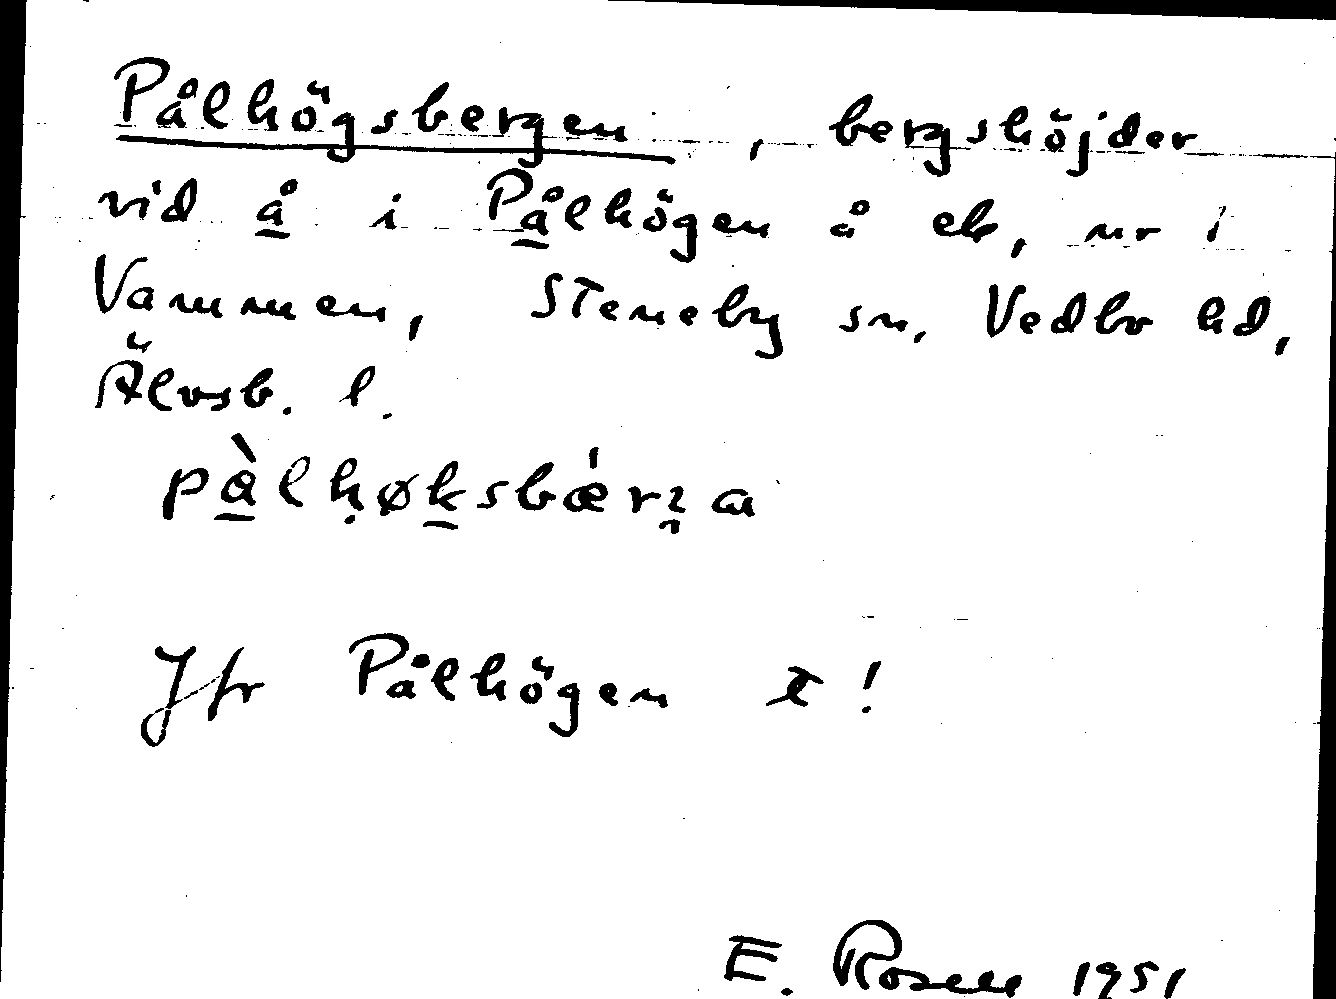 Pålhögsbergen, bergshöjder
vid å i Pålhögen å ek, nr i
Vammen, Steneby sn, Vedbo hd,
Älvsb. l.
pàlhøksbǽrʒa
Jfr Pålhögen t!
E. Rosell 1951